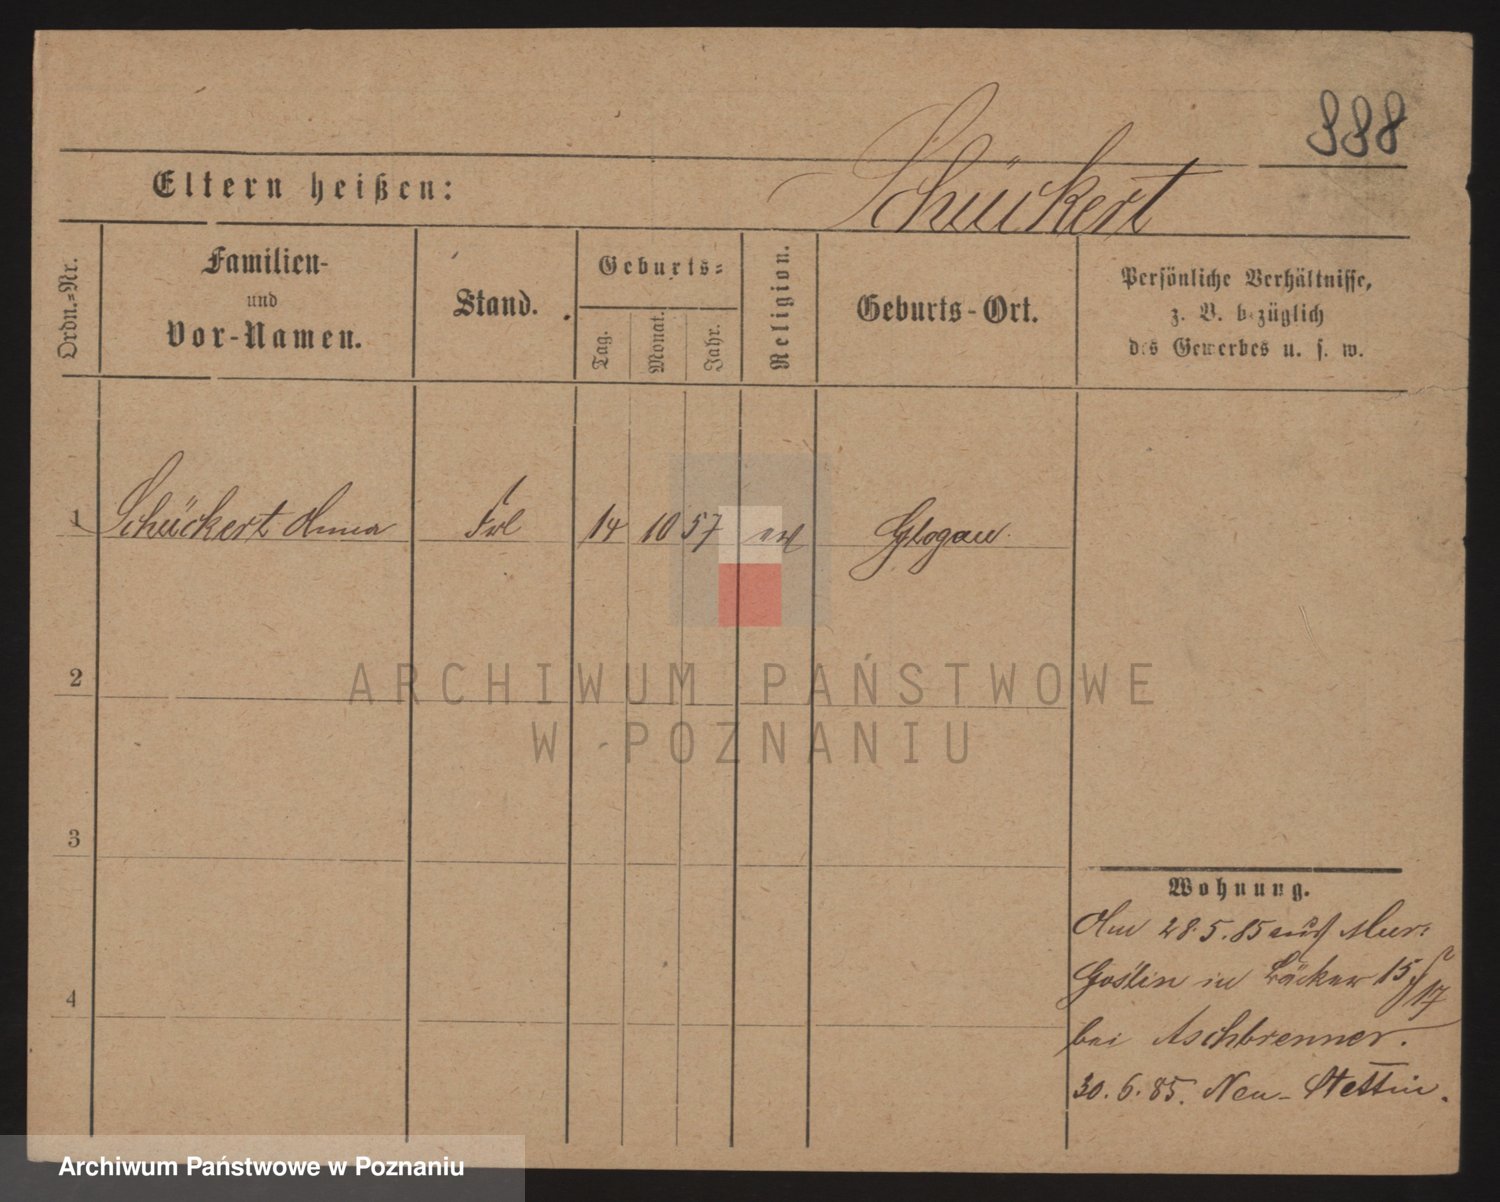 338
Eltern heißen:
Schückert
Ordn.-Nr.
Familien-
und
Vor-Namen.
Stand.
Geburts-
Tag.
Monat.
Jahr.
Religion.
Geburts-Ort.
Persönliche Verhältnisse,
z. B. bezüglich
des Gewerbes u. s. w.
1 Schückert Anna Frl 14 10 57 evl Glogau
2
3
4
ARCHIWUM PAŃSTWOWE
W POZNANIU
Wohnung.
Am 28.5.85 aus Mur:
Goślin in Bäcker 15/17
bei Aschbrenner.
30.6.85. Neu-Stettin.
Archiwum Państwowe w Poznaniu